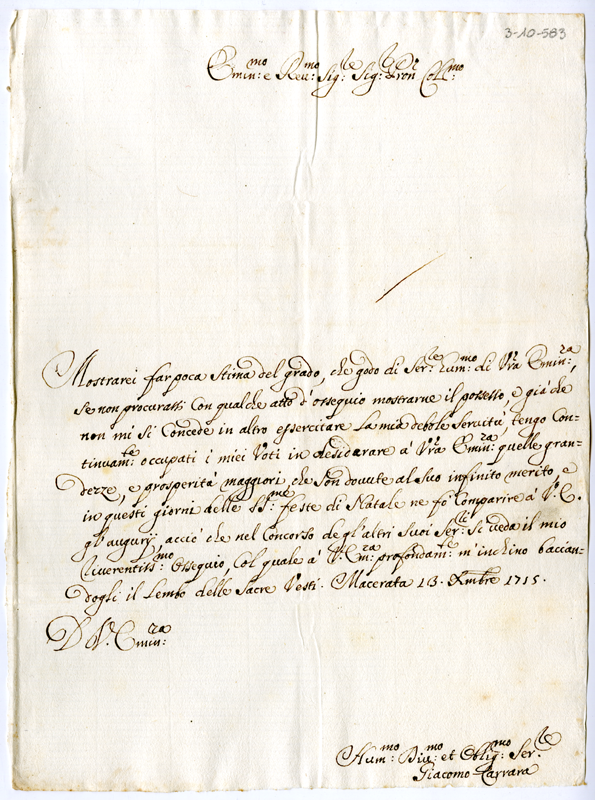 3-10-583
Emin:mo e Reu:mo Sig:le Sig:le Pron Coll:mo
Mostrarei far poca stima del grado, che godo di Ser:le hum:mo di Vra Emin:za,
se non procurassi con qualche atto d'ossequio mostrarne il possesso, e già che
non mi si concede in altro essercitare la mia debole servitù, tengo con-
tinuam:te occupati i miei voti in desiderare à Vra Emin:za quelle gran-
dezze, e prosperità maggiori, che son dovute al suo infinito merito, e
in questi giorni delle SS:me feste di Natale ne fò comparire à V. E.
gl'augurij acciò che nel concorso degl'altri suoi Ser:li si veda il mio
riverentiss:mo ossequio, col quale à V. Em:za profondam:te m'inchino baccian-
dogli il lembo delle sacre vesti. Macerata 13. Xmbre 1715.
D V. Emin:za
Hum:mo Diu:mo et Oblig:mo Ser:le
Giacomo Carrara